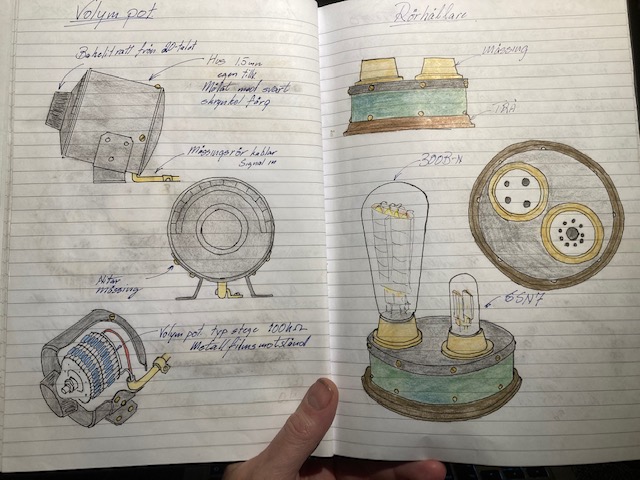 Volympot
Bakelitratt från 20-talet
Hus 1.5mm
egen tillv
Målat med svart
skrynkel färg
Mässingsrör kablar
Signal in
Nitar
mässing
Volympot typ stege 100kΩ
Metallfilmsmotstånd
Rörhållare
Mässing
TRÄ
300B-N
6SN7